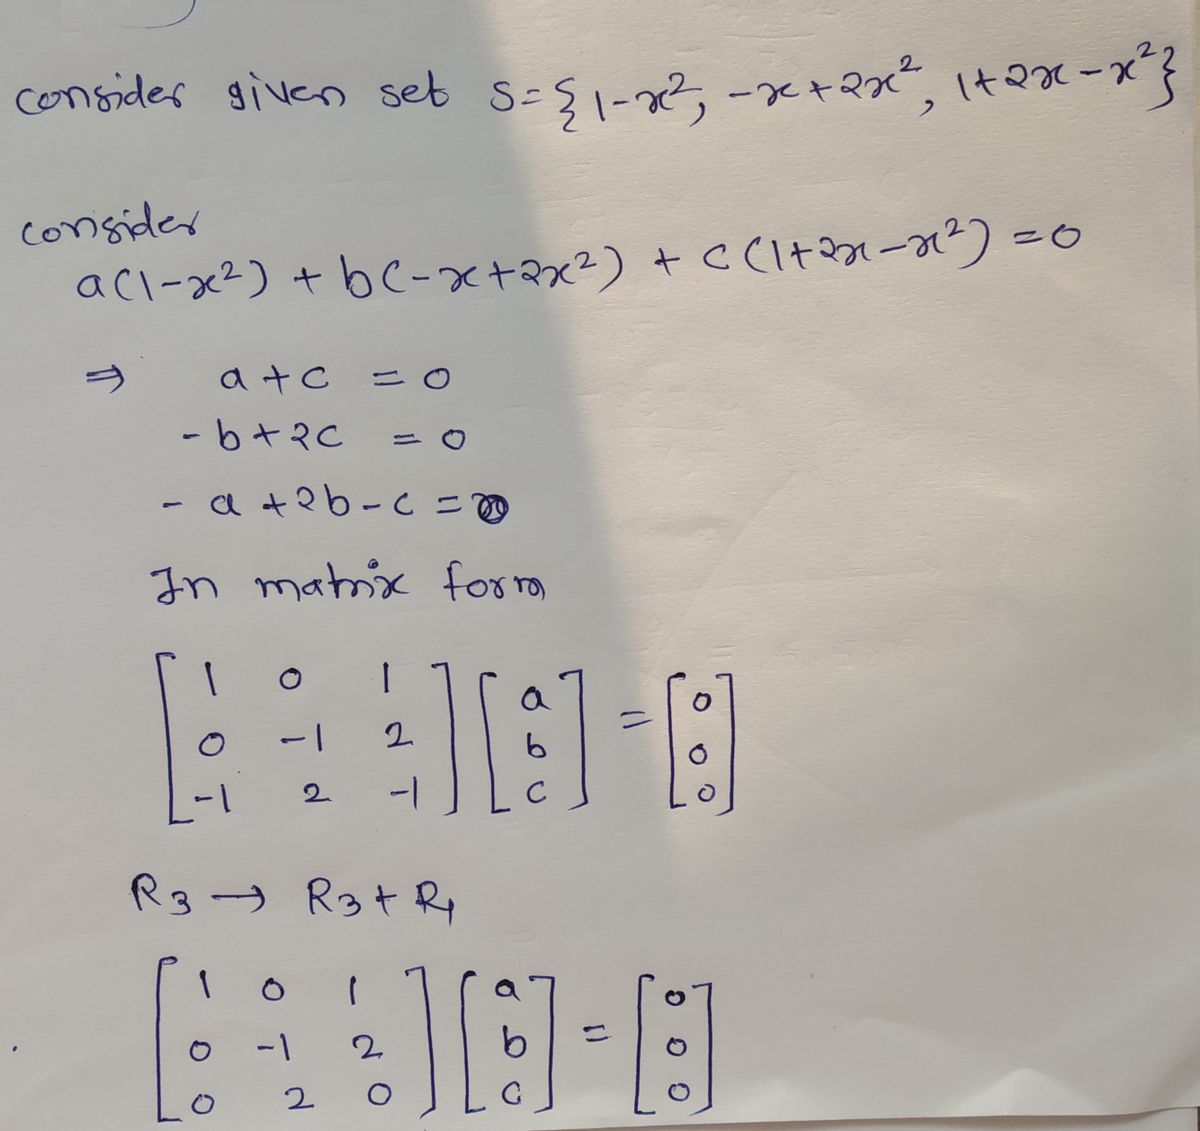 consider given set S={1-x², -x+2x², 1+2x-x²}
consider
a(1-x²) + b(-x+2x²) + c(1+2x-x²) =0
⇒ a+c = 0
-b+2c = 0
-a+2b-c =
In matrix form
[1 0 1] [a] = [0]
[0 -1 2] [b] [0]
[-1 2 -1] [c] [0]
R3 → R3+R1
[1 0 1] [a] = [0]
[0 -1 2] [b] [0]
[0 2 0] [c] [0]